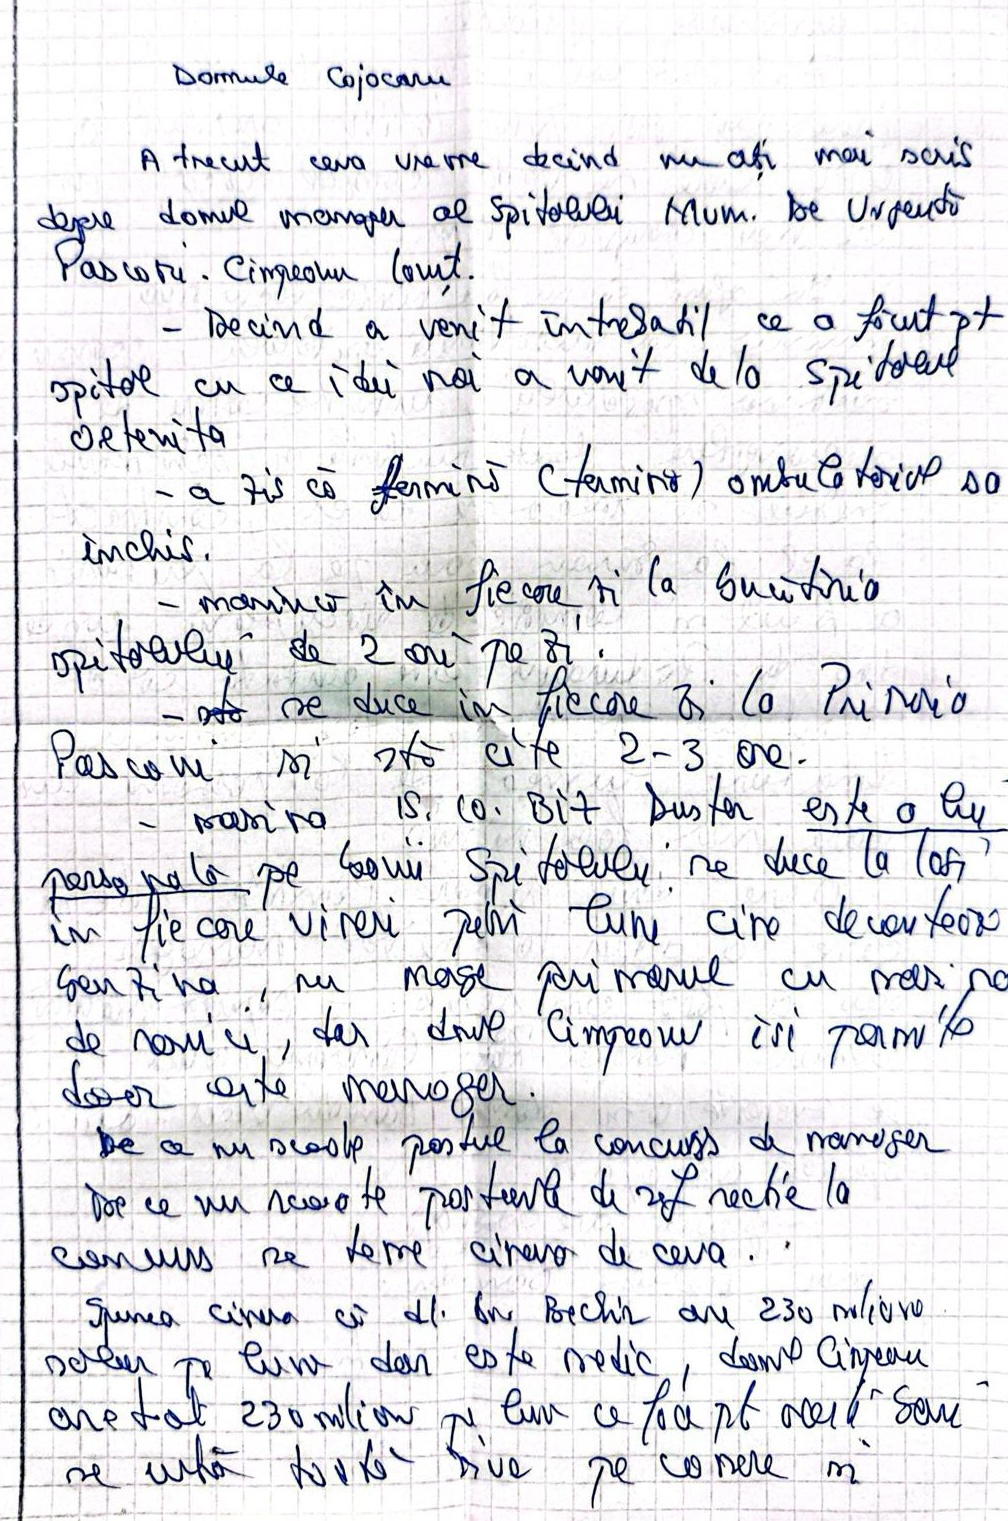 Domnule Cojocaru
A trecut ceva vreme decind nu ați mai scris
despre domnul manager al Spitalului Mum. De Urgență
Pascani. Cimpeanu Conșt.
- Decind a venit întrebatil ce a făcut pt
spital cu ce idei noi a venit de la Spitalul
- a zis că termină (termină) ambulatoriul so
inchis.
- maninca în fiecare zi la bucătăria
spitalului de 2 ori pe zi.
- se duce in fiecare zi la Primăria
Pascani si stă cite 2-3 ore.
- masina IS. CO. Duster este a lui
personală pe banii Spitalului se duce la Iasi
in fiecare vineri prin luni cine deconteaza
benzina, nu merge primarul cu masina
de servici, dar dnul Cimpeanu isi permite
doar este manager.
De ce nu scoate postul la concurs de manager
De ce nu scoate posturile de sef sectie la
concurs se teme cineva de ceva.
Spunea cineva că dl. Dr. Bechir are 230 milioane
salar pe luna dar este medic, domnul Cimpeanu
are tot 230 milioane pe luna ce face pt acesti bani
se uită toată ziua pe camere si